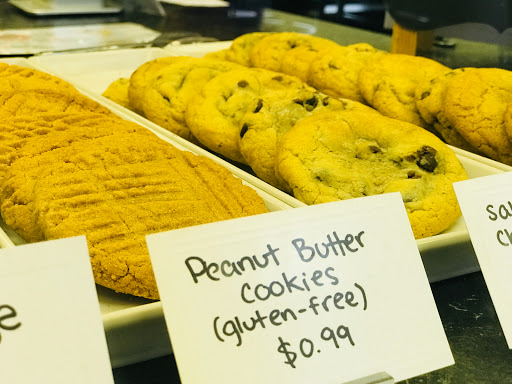 Peanut Butter
Cookies
(gluten-free)
$0.99